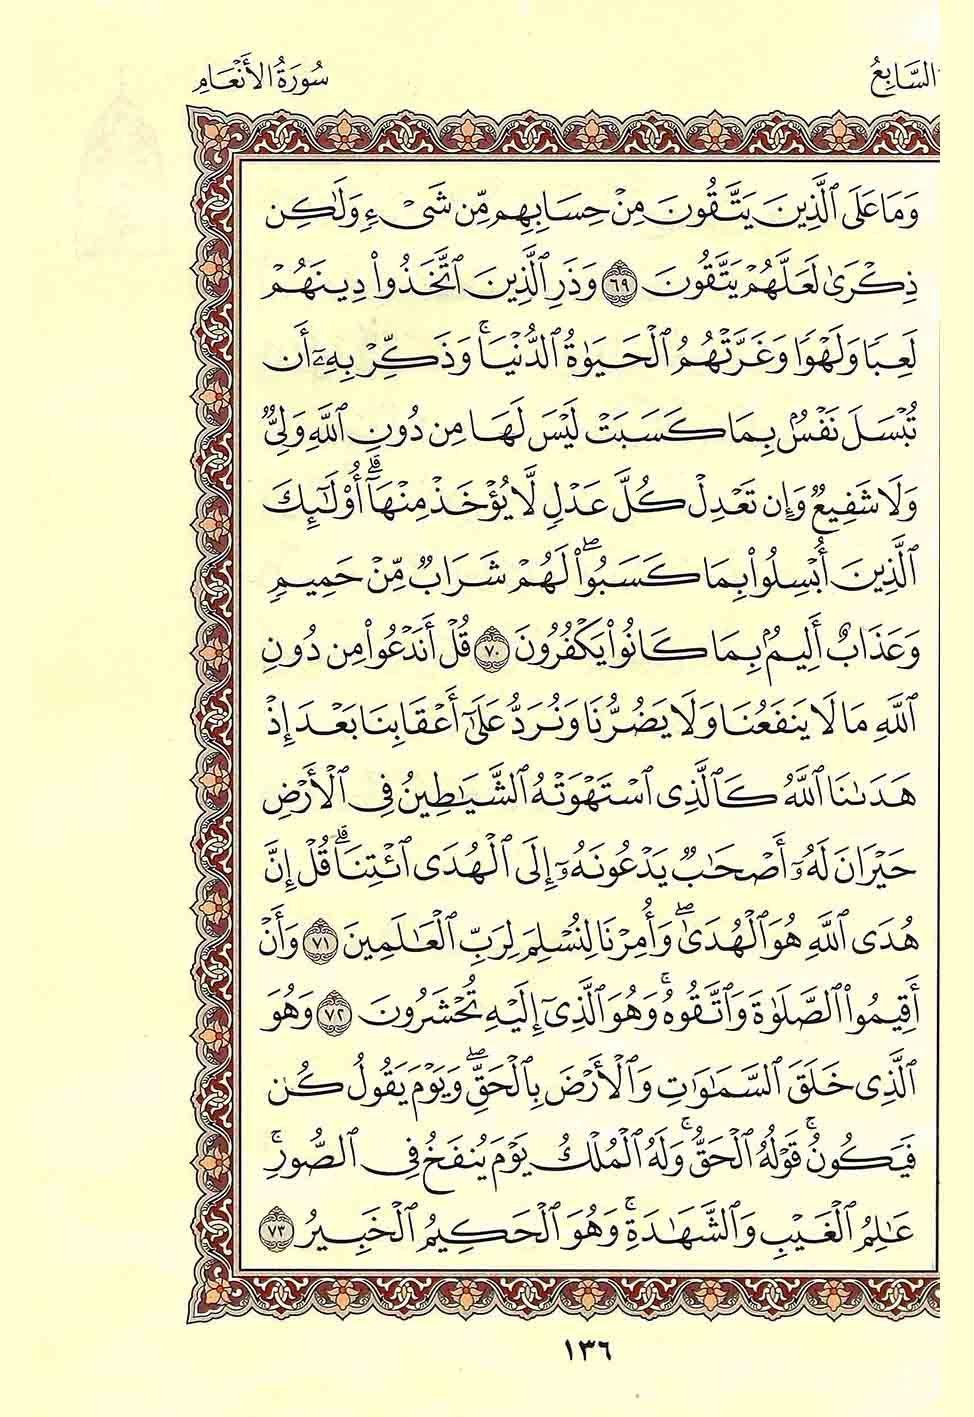 السَّابِعُ
سُورَةُ الأَنْعَامِ
وَمَا عَلَى ٱلَّذِينَ يَتَّقُونَ مِنْ حِسَابِهِم مِّن شَىْءٍ وَلَٰكِن
ذِكْرَىٰ لَعَلَّهُمْ يَتَّقُونَ ٦٩ وَذَرِ ٱلَّذِينَ ٱتَّخَذُوا۟ دِينَهُمْ
لَعِبًا وَلَهْوًا وَغَرَّتْهُمُ ٱلْحَيَوٰةُ ٱلدُّنْيَا ۚ وَذَكِّرْ بِهِۦٓ أَن
تُبْسَلَ نَفْسٌۢ بِمَا كَسَبَتْ لَيْسَ لَهَا مِن دُونِ ٱللَّهِ وَلِىٌّ
وَلَا شَفِيعٌ وَإِن تَعْدِلْ كُلَّ عَدْلٍ لَّا يُؤْخَذْ مِنْهَآ ۗ أُو۟لَٰٓئِكَ
ٱلَّذِينَ أُبْسِلُوا۟ بِمَا كَسَبُوا۟ ۖ لَهُمْ شَرَابٌ مِّنْ حَمِيمٍ
وَعَذَابٌ أَلِيمٌۢ بِمَا كَانُوا۟ يَكْفُرُونَ ٧٠ قُلْ أَنَدْعُوا۟ مِن دُونِ
ٱللَّهِ مَا لَا يَنفَعُنَا وَلَا يَضُرُّنَا وَنُرَدُّ عَلَىٰٓ أَعْقَابِنَا بَعْدَ إِذْ
هَدَىٰنَا ٱللَّهُ كَٱلَّذِى ٱسْتَهْوَتْهُ ٱلشَّيَٰطِينُ فِى ٱلْأَرْضِ
حَيْرَانَ لَهُۥٓ أَصْحَٰبٌ يَدْعُونَهُۥٓ إِلَى ٱلْهُدَى ٱئْتِنَا ۗ قُلْ إِنَّ
هُدَى ٱللَّهِ هُوَ ٱلْهُدَىٰ ۖ وَأُمِرْنَا لِنُسْلِمَ لِرَبِّ ٱلْعَٰلَمِينَ ٧١ وَأَنْ
أَقِيمُوا۟ ٱلصَّلَوٰةَ وَٱتَّقُوهُ ۚ وَهُوَ ٱلَّذِىٓ إِلَيْهِ تُحْشَرُونَ ٧٢ وَهُوَ
ٱلَّذِى خَلَقَ ٱلسَّمَٰوَٰتِ وَٱلْأَرْضَ بِٱلْحَقِّ ۖ وَيَوْمَ يَقُولُ كُن
فَيَكُونُ ۚ قَوْلُهُ ٱلْحَقُّ ۚ وَلَهُ ٱلْمُلْكُ يَوْمَ يُنفَخُ فِى ٱلصُّورِ ۚ
عَٰلِمُ ٱلْغَيْبِ وَٱلشَّهَٰدَةِ ۚ وَهُوَ ٱلْحَكِيمُ ٱلْخَبِيرُ ٧٣
١٣٦